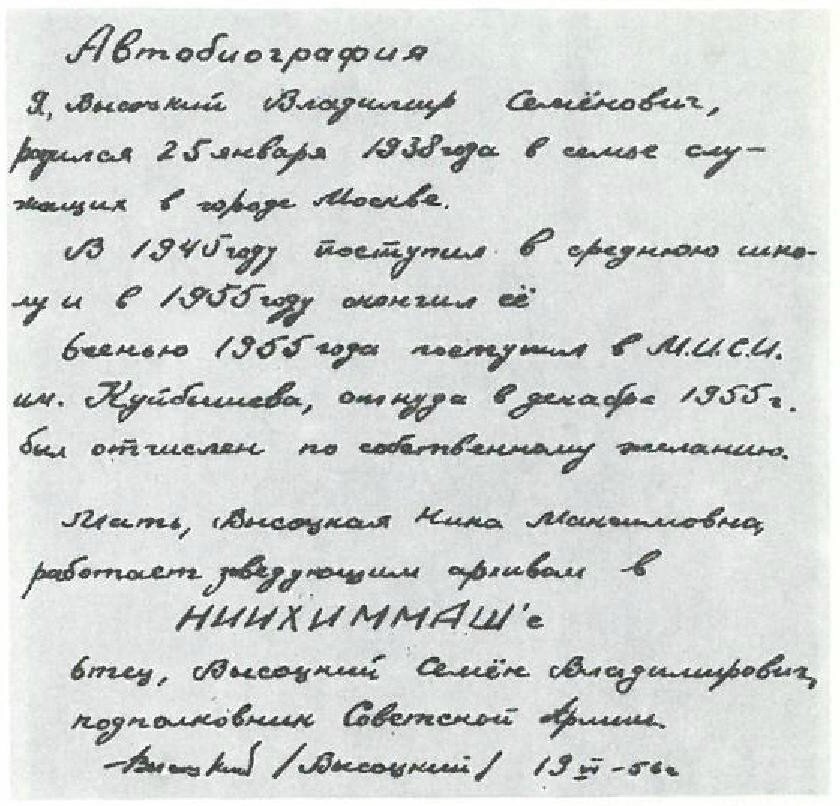 Автобиография
Я, Высоцкий Владимир Семёнович,
родился 25 января 1938 года в семье слу-
жащих в городе Москве.
В 1945 году поступил в среднюю шко-
лу и в 1955 году окончил её
Осенью 1955 года поступил в М.И.С.И.
им. Куйбышева, откуда в декабре 1955 г.
был отчислен по собственному желанию.
Мать, Высоцкая Нина Максимовна,
работает заведующим архивом в
НИИХИММАШ'е
Отец, Высоцкий Семён Владимирович,
подполковник Советской Армии.
Высоцкий /Высоцкий/ 19 VI - 56 г